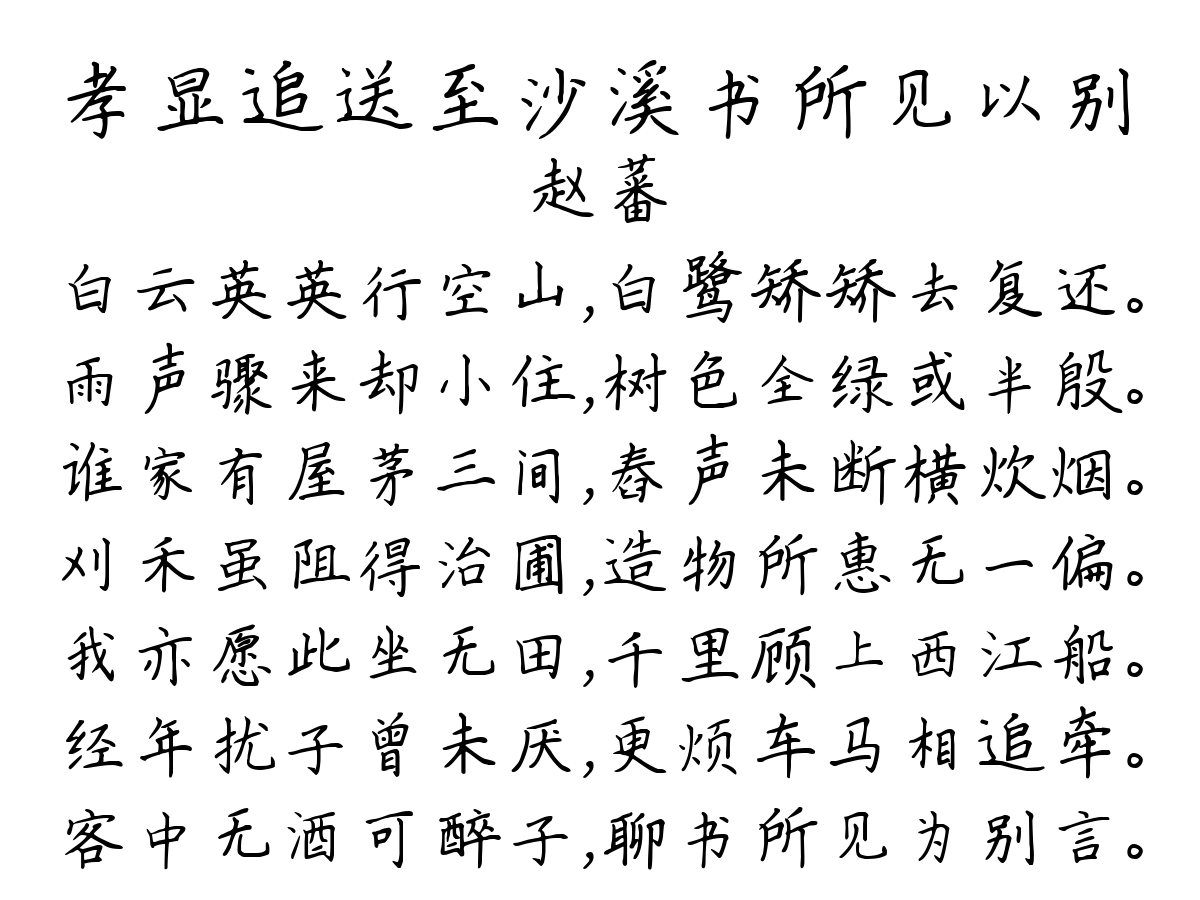 孝显追送至沙溪书所见以别
赵蕃
白云英英行空山,白鹭矫矫去复还。
雨声骤来却小住,树色全绿或半殷。
谁家有屋茅三间,舂声未断横炊烟。
刈禾虽阻得治圃,造物所惠无一偏。
我亦愿此坐无田,千里顾上西江船。
经年扰子曾未厌,更烦车马相追牵。
客中无酒可醉子,聊书所见为别言。